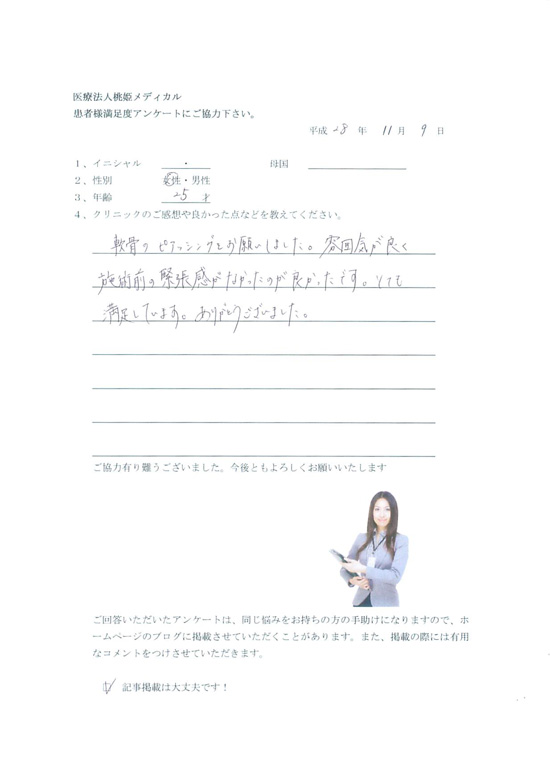 医療法人桃姫メディカル
患者様満足度アンケートにご協力下さい。
平成 28 年 11 月 9 日
1、イニシャル ・ 母国
2、性別 女性・男性
3、年齢 25 才
4、クリニックのご感想や良かった点などを教えてください。
軟骨のピアッシングをお願いしました。雰囲気が良く
施術前の緊張感がなかったのが良かったです。とても
満足しています。ありがとうございました。
ご協力有り難うございました。今後ともよろしくお願いいたします
ご回答いただいたアンケートは、同じ悩みをお持ちの方の手助けになりますので、ホ
ームページのブログに掲載させていただくことがあります。また、掲載の際には有用
なコメントをつけさせていただきます。
☑ 記事掲載は大丈夫です！